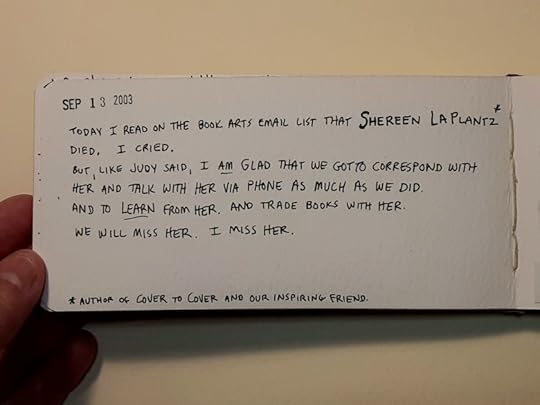 SEP 13 2003
TODAY I READ ON THE BOOK ARTS EMAIL LIST THAT SHEREEN LAPLANTZ*
DIED. I CRIED.
BUT, LIKE JUDY SAID, I AM GLAD THAT WE GOT TO CORRESPOND WITH
HER AND TALK WITH HER VIA PHONE AS MUCH AS WE DID.
AND TO LEARN FROM HER. AND TRADE BOOKS WITH HER.
WE WILL MISS HER. I MISS HER.
* AUTHOR OF COVER TO COVER AND OUR INSPIRING FRIEND.